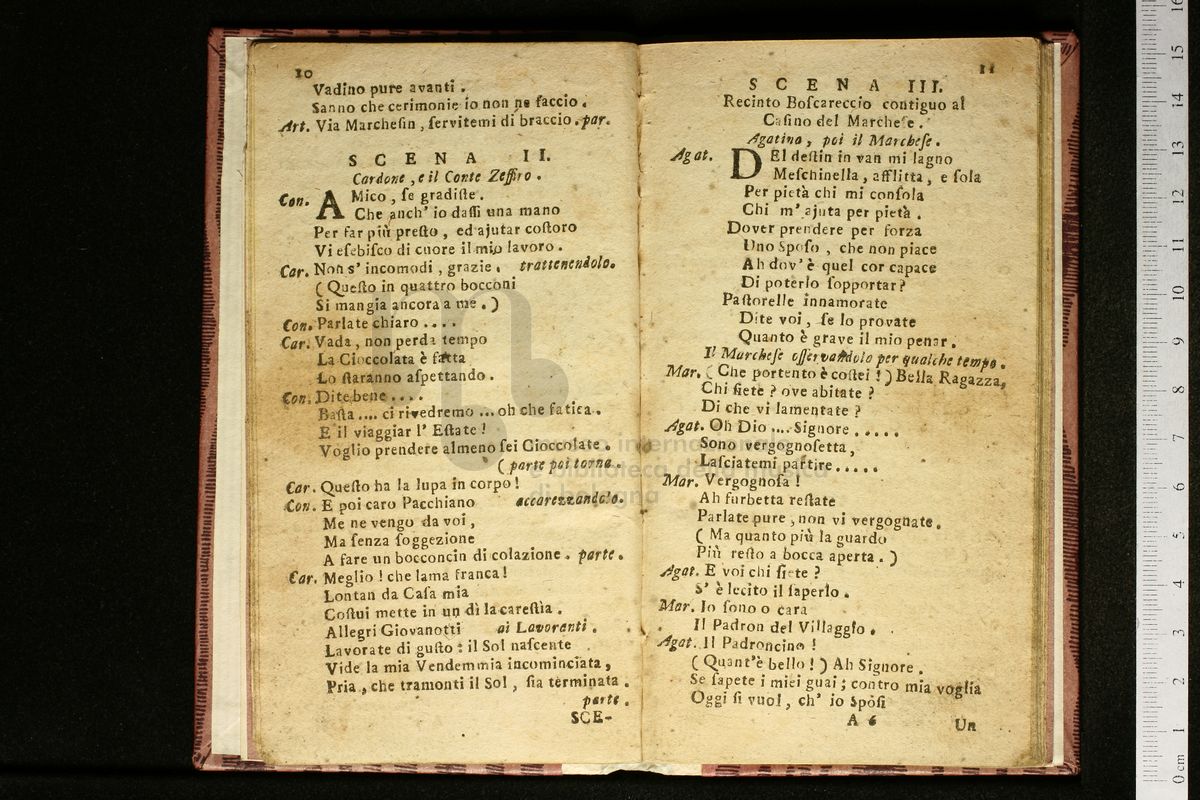 10
Vadino pure avanti .
Sanno che cerimonie io non ne faccio .
Art. Via Marchesin , servitemi di braccio . par.
SCENA II.
Cardone , e il Conte Zeffiro .
Con. AMico , se gradiste .
Che anch' io dassi una mano
Per far più presto , ed ajutar costoro
Vi esebisco di cuore il mio lavoro .
Car. Non s' incomodi , grazie . trattenendolo.
( Questo in quattro bocconi
Si mangia ancora a me . )
Con. Parlate chiaro ....
Car. Vada , non perda tempo
La Cioccolata è fatta
Lo staranno aspettando .
Con. Dite bene ....
Basta .... ci rivedremo ... oh che fatica .
E il viaggiar l' Estate !
Voglio prendere almeno sei Cioccolate .
( parte poi torna .
Car. Questo ha la lupa in corpo !
Con. E poi caro Pacchiano accarezzandolo.
Me ne vengo da voi ,
Ma senza soggezione
A fare un bocconcin di colazione . parte .
Car. Meglio ! che lama franca !
Lontan da Casa mia
Costui mette in un dì la carestìa .
Allegri Giovanotti ai Lavorenti .
Lavorate di gusto : il Sol nascente
Vide la mia Vendemmia incominciata ,
Pria , che tramonti il Sol , sia terminata .
parte .
SCE-
11
SCENA III.
Recinto Boscareccio contiguo al
Casino del Marchese .
Agatina , poi il Marchese .
Agat. DEl destin in van mi lagno
Meschinella , afflitta , e sola
Per pietà chi mi consola
Chi m' ajuta per pietà .
Dover prendere per forza
Uno Sposo , che non piace
Ah dov' è quel cor capace
Di poterlo sopportar ?
Pastorelle innamorate
Dite voi , se lo provate
Quanto è grave il mio penar .
Il Marchese osservandolo per qualche tempo .
Mar. ( Che portento è costei ! ) Bella Ragazza,
Chi siete ? ove abitate ?
Di che vi lamentate ?
Agat. Oh Dio .... Signore .....
Sono vergognosetta ,
Lasciatemi partire .....
Mar. Vergognosa !
Ah furbetta restate
Parlate pure , non vi vergognate .
( Ma quanto più la guardo
Più resto a bocca aperta . )
Agat. E voi chi siete ?
S' è lecito il saperlo .
Mar. Io sono o cara
Il Padron del Villaggio .
Agat. Il Padroncino !
( Quant'è bello ! ) Ah Signore .
Se sapete i miei guai ; contro mia voglia
Oggi si vuol , ch' io Sposi
A 6
Un